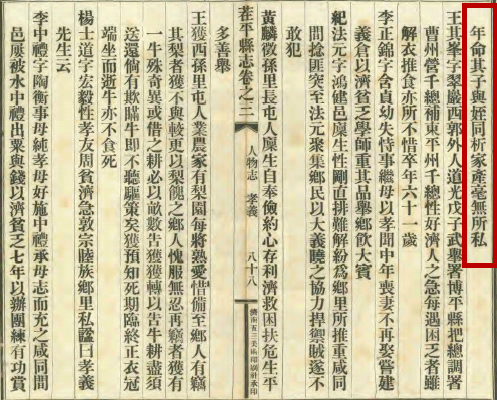 年命其子與姪同析家產毫無所私
王其峯字翠巖西郭外人道光戊子武舉署博平縣把總調署
曹州營千總補東平州千總性好濟人之急每遇困乏者雖
解衣推食亦所不惜卒年六十一歲
李正錦字含貞幼失恃事繼母以孝聞中年喪妻不再娶嘗建
義倉以濟貧乏學師重其品舉鄉飲大賓
紀法元字鴻健邑廩生性剛直排難解紛爲鄉里所推重咸同
間捻匪突至法元聚集鄉民以大義曉之協力捍禦賊遂不
敢犯
茌平縣志卷之三 人物志 孝義 八十八 濟南五三美術印刷社承印
黃麟徵孫里長屯人廩生自奉儉約心存利濟救困扶危生平
多善舉
王獲西孫里屯人業農家有梨園每將熟愛惜備至鄉人有竊
其梨者獲不與較更以梨餽之鄉人愧服無忍再竊者獲有
一牛殊奇異或借之耕必以畝數告獲獲轉以告牛耕盡須
送還倘有欺瞞牛即不聽驅策矣獲預知死期臨終正衣冠
端坐而逝牛亦不食死
楊士道字宏毅性孝友周貧濟急敦宗睦族鄉里私諡曰孝義
先生云
李中禮字陶衡事母純孝母好施中禮承母志而充之咸同間
邑屢被水中禮出粟與錢以濟貧乏七年以辦團練有功賞